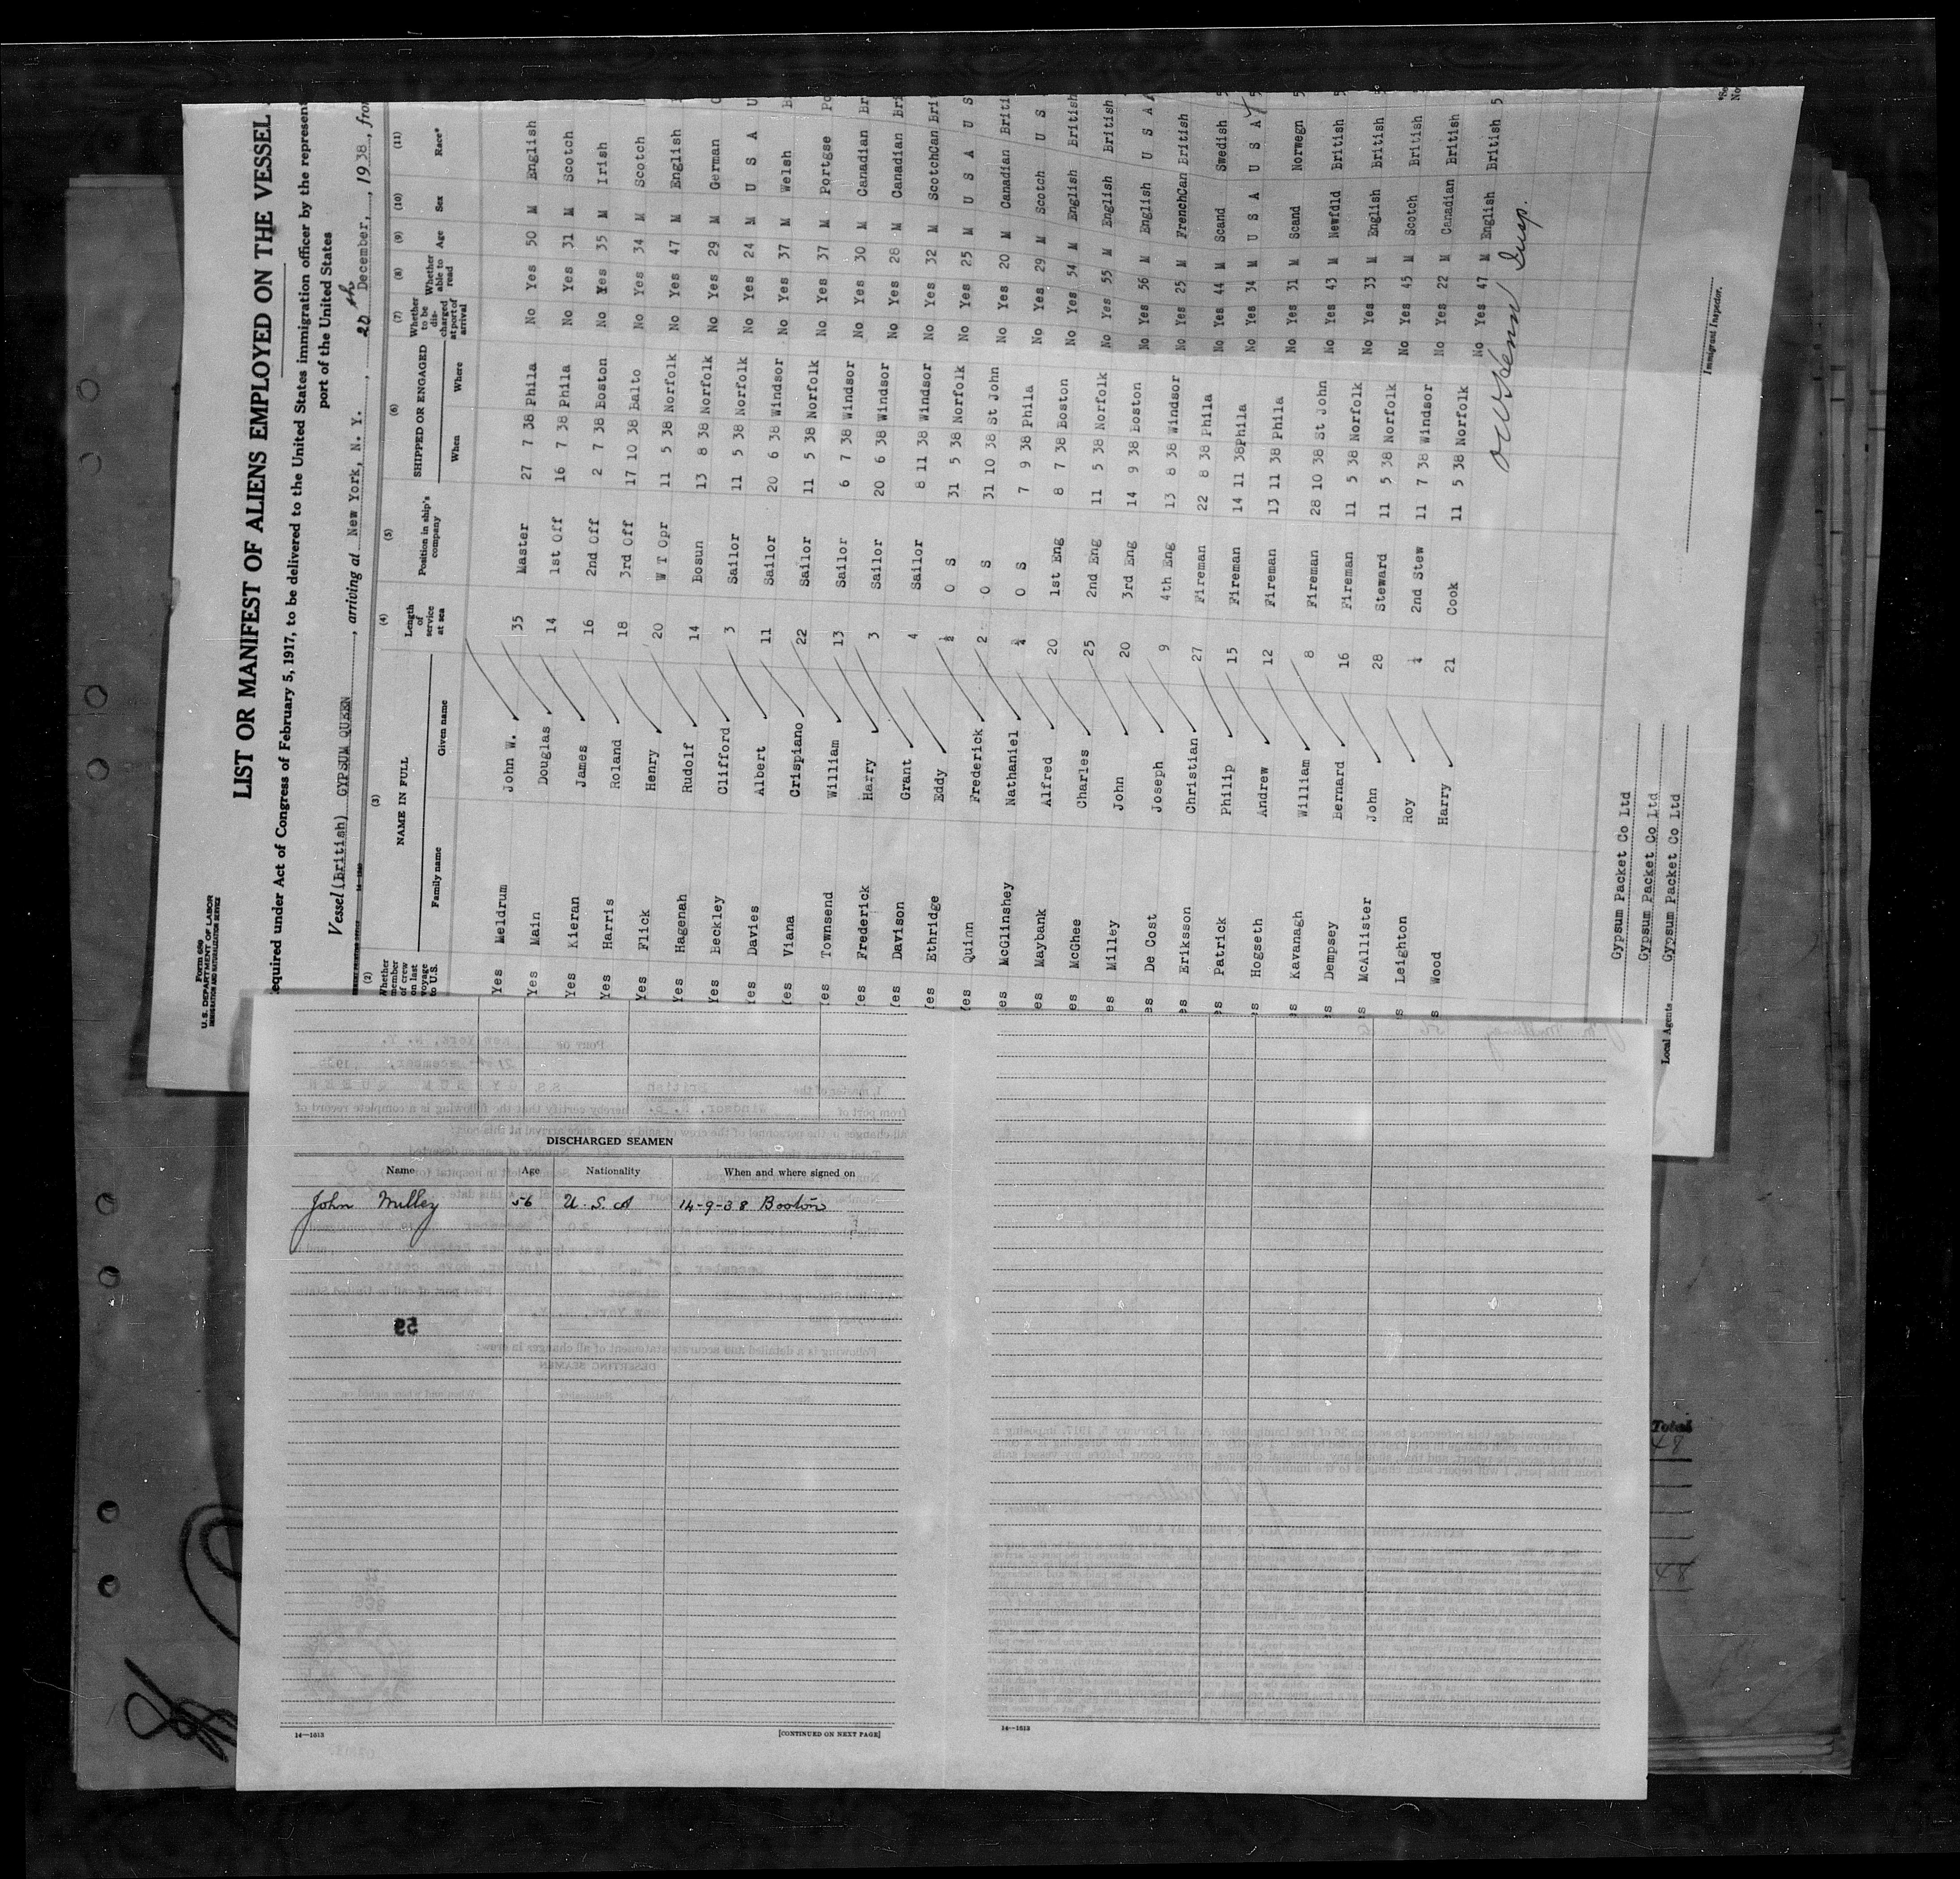 Form 680
U. S. DEPARTMENT OF LABOR
IMMIGRATION AND NATURALIZATION SERVICE
LIST OR MANIFEST OF ALIENS EMPLOYED ON THE VESSEL
equired under Act of Congress of February 5, 1917, to be delivered to the United States immigration officer by the represent
port of the United States
Vessel (British) GYPSUM QUEEN, arriving at New York, N. Y., 20th December, 1938, fro
(2) Whether member of crew on last voyage to U.S.
(3) NAME IN FULL
Family name Given name
(4) Length of service at sea
(5) Position in ship's company
(6) SHIPPED OR ENGAGED
When Where
(7) Whether to be discharged at port of arrival
(8) Whether able to read
(9) Age
(10) Sex
(11) Race*
Yes Meldrum John W. 35 Master 27 7 38 Phila No Yes 50 M English
Yes Main Douglas 14 1st Off 16 7 38 Phila No Yes 31 M Scotch
Yes Kieran James 16 2nd Off 2 7 38 Boston No Yes 35 M Irish
Yes Harris Roland 18 3rd Off 17 10 38 Balto No Yes 34 M Scotch
Yes Flick Henry 20 W T Opr 11 5 38 Norfolk No Yes 47 M English
Yes Hagenah Rudolf 14 Bosun 13 8 38 Norfolk No Yes 29 M German
Yes Beckley Clifford 3 Sailor 11 5 38 Norfolk No Yes 24 M U S A U
Yes Davies Albert 11 Sailor 20 6 38 Windsor No Yes 37 M Welsh B
Yes Viana Crispiano 22 Sailor 11 5 38 Norfolk No Yes 37 M Portgse Po
Yes Townsend William 13 Sailor 6 7 38 Windsor No Yes 30 M Canadian Br
Yes Frederick Harry 3 Sailor 20 6 38 Windsor No Yes 28 M Canadian Bri
Yes Davison Grant 4 Sailor 8 11 38 Windsor No Yes 32 M ScotchCan Brit
Yes Ethridge Eddy ½ O S 31 5 38 Norfolk No Yes 25 M U S A U S
Yes Quinn Frederick 2 O S 31 10 38 St John No Yes 20 M Canadian Briti
es McGlinshey Nathaniel ¾ O S 7 9 38 Phila No Yes 29 M Scotch U S
es Maybank Alfred 20 1st Eng 8 7 38 Boston No Yes 54 M English British
es McGhee Charles 25 2nd Eng 11 5 38 Norfolk No Yes 55 M English British
es Milley John 20 3rd Eng 14 9 38 Boston No Yes 56 M English U S A
es De Cost Joseph 9 4th Eng 13 8 38 Windsor No Yes 25 M FrenchCan British
es Eriksson Christian 27 Fireman 22 8 38 Phila No Yes 44 M Scand Swedish 5
es Patrick Philip 15 Fireman 14 11 38Phila No Yes 34 M U S A U S A 5
es Hogseth Andrew 12 Fireman 13 11 38 Phila No Yes 31 M Scand Norwegn 5
es Kavanagh William 8 Fireman 28 10 38 St John No Yes 43 M Newfdld British 5
es Dempsey Bernard 16 Fireman 11 5 38 Norfolk No Yes 33 M English British
s McAllister John 28 Steward 11 5 38 Norfolk No Yes 45 M Scotch British
s Leighton Roy ¼ 2nd Stew 11 7 38 Windsor No Yes 22 M Canadian British
s Wood Harry 21 Cook 11 5 38 Norfolk No Yes 47 M English British 5
Insp.
Immigrant Inspector.
Gypsum Packet Co Ltd
Gypsum Packet Co Ltd
Local Agents Gypsum Packet Co Ltd
*Se
No
DISCHARGED SEAMEN
Name Age Nationality When and where signed on
John Milley 56 U. S. A 14-9-38 Boston
59
14—1513
[CONTINUED ON NEXT PAGE]
14—1513
Total
48
48